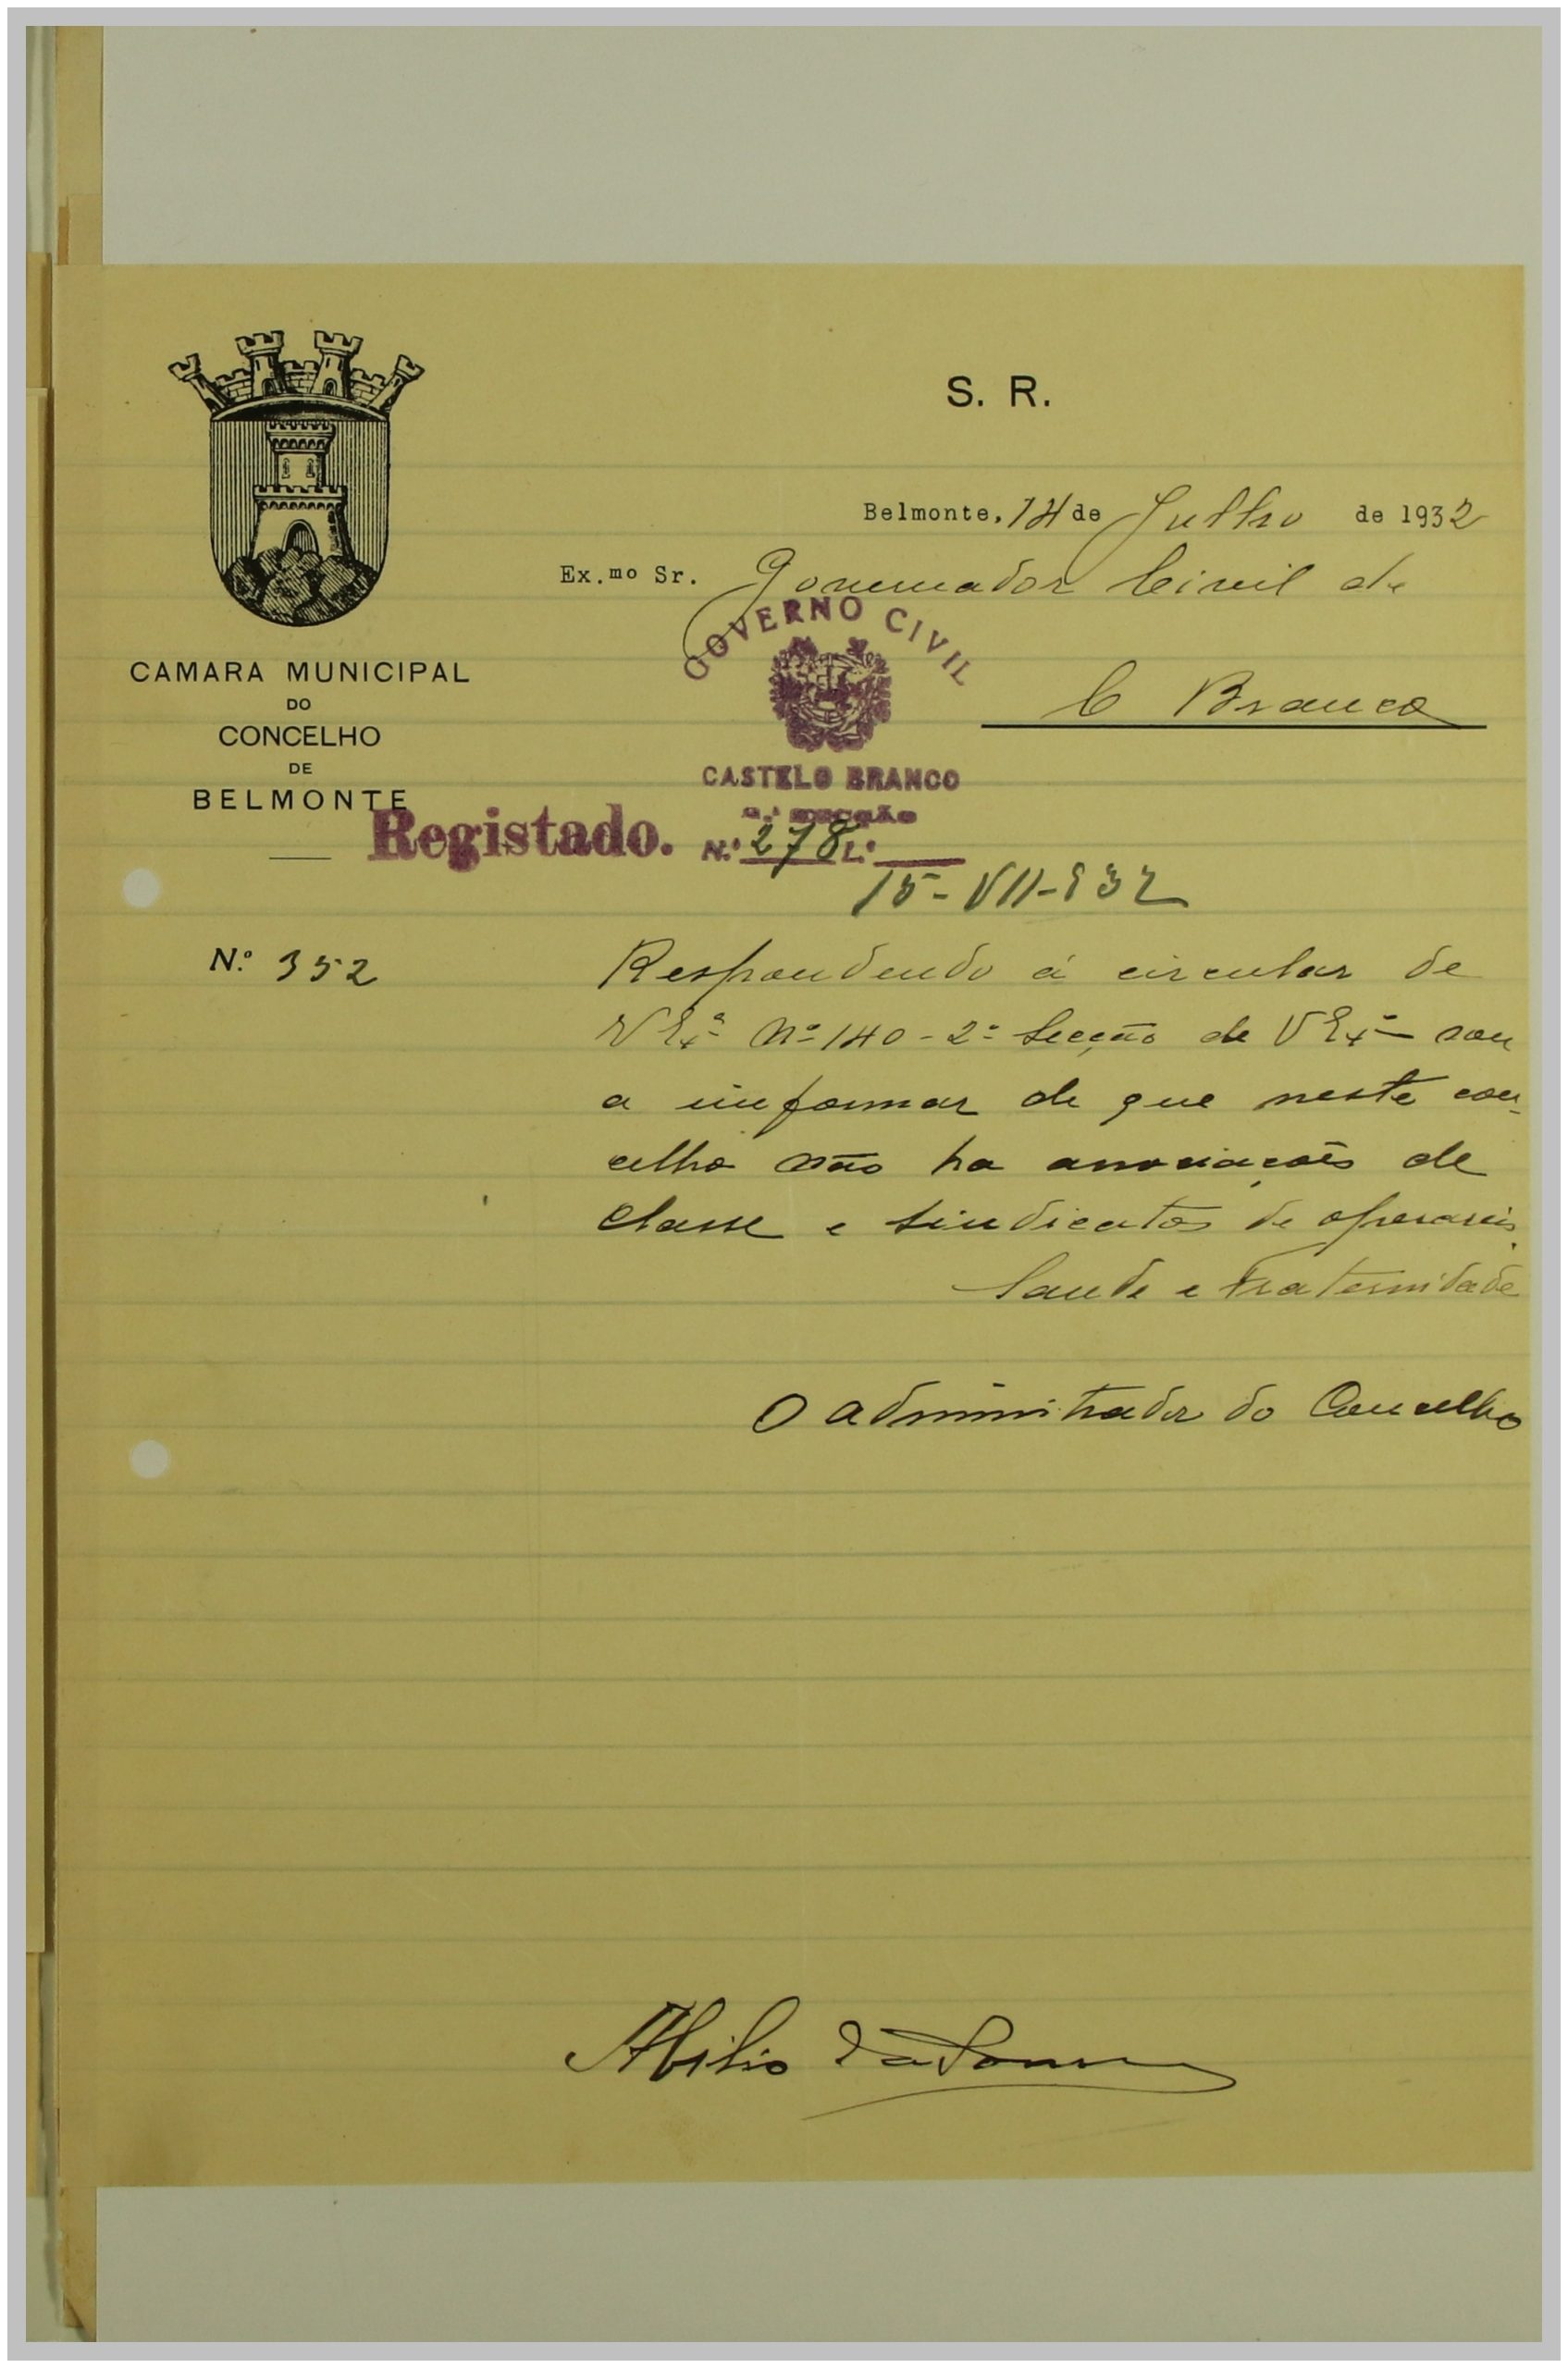 S. R.
Belmonte, 14 de Julho de 1932
Ex.mo Sr. Governador Civil de
C Branco
CAMARA MUNICIPAL
DO
CONCELHO
DE
BELMONTE
GOVERNO CIVIL
CASTELO BRANCO
2.ª secção
Registado. N.º 278 L.º
15-VII-932
N.º 352
Respondendo á circular de
V Exª Nº 140 - 2ª Secção de V Exª vou
a informar de que neste con-
celho não ha associações de
classe e sindicatos de operarios.
Saude e Fraternidade
O administrador do Concelho
Abilio